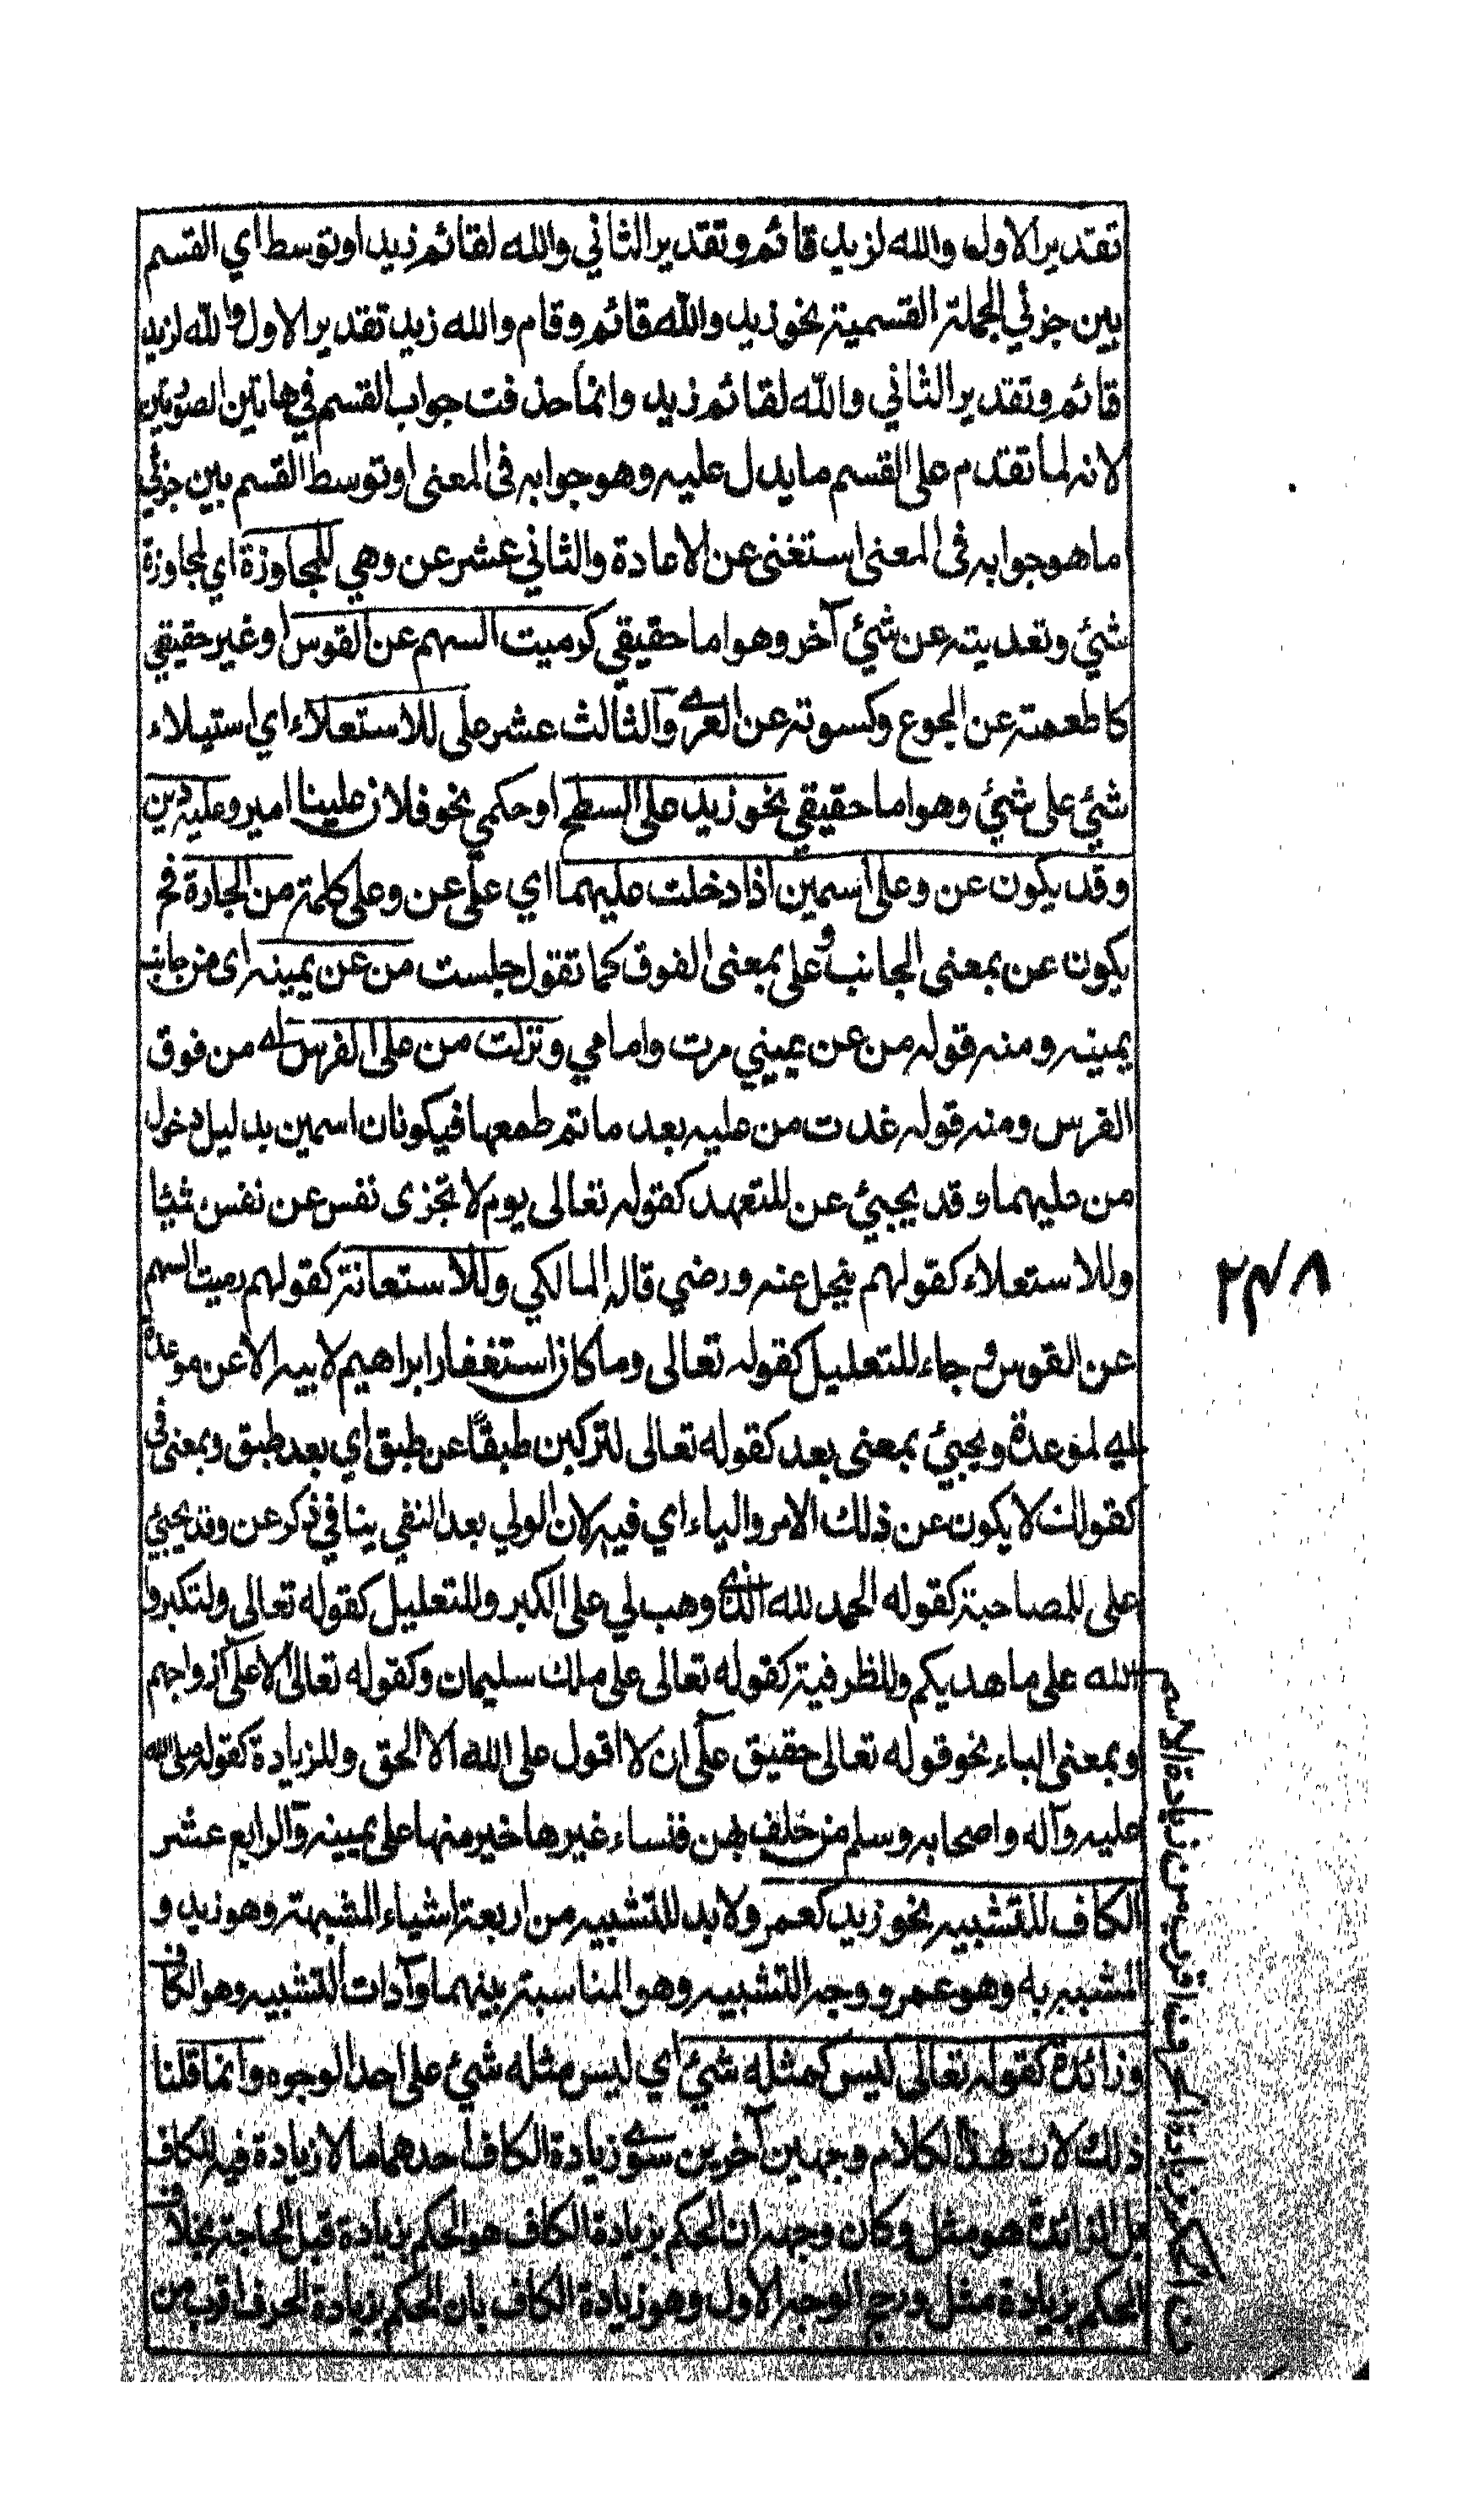 تقدير الاول والله لزيد قائم وتقدير الثاني والله لقائم زيد او توسط اي القسم
بين جزئي الجملة القسمية نحو زيد والله قائم وقام والله زيد تقدير الاول والله لزيد
قائم وتقدير الثاني والله لقائم زيد وانما حذفت جواب القسم في هاتين الصورتين
لانه لما تقدم على القسم ما يدل عليه وهو جوابه فى المعنى او توسط القسم بين جزئي
ما هو جوابه فى المعنى استغنى عن الاعادة والثاني عشر عن وهي للمجاوزة اي لمجاوزة
شئي وتعديته عن شئي آخر وهو اما حقيقي كرميت السهم عن القوس او غير حقيقي
كاطعمته عن الجوع وكسوته عن العري والثالث عشر على للاستعلاء اي استيلاء
شئي على شئي وهو اما حقيقي نحو زيد على السطح او حكمي نحو فلان علينا امير وعليه دين
وقد يكون عن وعلى اسمين اذا دخلت عليهما اي على عن وعلى كلمة من الجارة فح
يكون عن بمعنى الجانب وعلى بمعنى الفوق كما تقول جلست من عن يمينه اى من جانب
يمينه ومنه قوله من عن يميني مرت وامامي ونزلت من على الفرس اے من فوق
الفرس ومنه قوله غدت من عليه بعد ما تم طمعها فيكونان اسمين بدليل دخول
من عليهما وقد يجيئ عن للتعهد كقوله تعالى يوم لا تجزى نفس عن نفس شيئا
وللاستعلاء كقولهم يبخل عنه ورضي قاله المالكي وللاستعانة كقولهم رميت السهم
عن القوس وجاء للتعليل كقوله تعالى وما كان استغفار ابراهيم لابيه الا عن موعدة
اليه لموعدة ويجيئ بمعنى بعد كقوله تعالى لتركبن طبقًا عن طبق اي بعد طبق وبمعنى فى
كقولك لا يكون عن ذلك الامر والياء اي فيه لان الولي بعد النفي ينافي ذكر عن وقد يجيئ
على للمصاحبة كقوله الحمد لله الذي وهب لي على الكبر وللتعليل كقوله تعالى ولتكبروا
الله على ما هديكم وللظرفية كقوله تعالى على ملك سليمان وكقوله تعالى الا على ازواجهم
وبمعنى الباء نحو قوله تعالى حقيق على ان لا اقول على الله الا الحق وللزيادة كقوله صلى الله
عليه وآله واصحابه وسلم من خلف بهن فنساء غيرها خير منها على يمينه والرابع عشر
الكاف للتشبيه نحو زيد كعمر ولا بد للتشبيه من اربعة اشياء المشبهة وهو زيد و
المشبه به وهو عمر و ووجه التشبيه وهو المناسبة بينهما وآدات التشبيه وهو الكاف
وزائدة كقوله تعالى ليس كمثله شئي اي ليس مثله شئي على احد الوجوه وانما قلنا
ذلك لان لهذا الكلام وجهين آخرين سوي زيادة الكاف احدهما ما لا زيادة فيه الكاف
بل الزائدة هو مثل وكان وجهه ان الحكم بزيادة الكاف هو الحكم بزيادة قبل الحاجة بخلاف
الحكم بزيادة مثل ورجح الوجه الاول وهو زيادة الكاف بان الحكم بزيادة الحرف اقرب من
زيادة الحرف اقرب من زيادة الاسم
٢٤٨